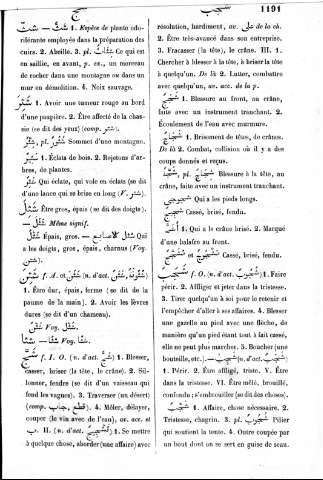 شج
شجب
1191
شَثّ — شَثٌّ 1. Espèce de plante odo-
riférante employée dans la préparation des
cuirs. 2. Abeille. 3. pl. شِثَاثٌ Ce qui est
en saillie, en avant, p. ex., un morceau
de rocher dans une montagne ou dans un
mur en démolition. 4. Noix sauvage.
1. Avoir une tumeur rouge au bord
d'une paupière. 2. Être affecté de la chas-
sie (se dit des yeux) (comp. شتر).
pl. Sommet d'une montagne.
1. Éclats de bois. 2. Rejetons d'ar-
bres, de plantes.
Qui éclate, qui vole en éclats (se dit
d'une lance qui se brise en long (V. شتر).
شَثُلَ Être gros, épais (se dit des doigts).
— Même signif.
شَثْلٌ Épais, gros. — شثل الأصابع Qui
a les doigts, gros, épais, charnus (Voy.
شثن).
شَثِنَ f. A. et شَثُنَ (n. d'act. شَثَنٌ, شُثُونَةٌ)
1. Être dur, épais, ferme (se dit de la
paume de la main). 2. Avoir les lèvres
dures (se dit d'un chameau).
شَثْنٌ Voy. شَثْلٌ.
شثا — شَثًا Voy. شثا.
شَجَّ f. I. O. (n. d'act. شَجٌّ) 1. Blesser,
casser, briser (la tête, le crâne). 2. Sil-
lonner, fendre (se dit d'un vaisseau qui
fend les vagues). 3. Traverser (un désert)
(comp. قطع, جاب). 4. Mêler, délayer,
couper (le vin avec de l'eau), av. acc. et
ب. II. (n. d'act. تَشْجِيجٌ) 1. Se mettre
à quelque chose, aborder (une affaire) avec
résolution, hardiment, av. على de la ch.
2. Être très-avancé dans son entreprise.
3. Fracasser (la tête), le crâne. III. 1.
Chercher à blesser à la tête, à briser la tête
à quelqu'un. De là 2. Lutter, combattre
avec quelqu'un, av. acc. de la p.
شَجٌّ 1. Blessure au front, au crâne,
faite avec un instrument tranchant. 2.
Écoulement de l'eau avec murmure.
شِجَاجٌ 1. Brisement de têtes, de crânes.
De là 2. Combat, collision où il y a des
coups donnés et reçus.
شَجَّةٌ, pl. شِجَاجٌ Blessure à la tête, au
crâne, faite avec un instrument tranchant.
شجوجى Qui a les pieds longs.
شَجِيجٌ Cassé, brisé, fendu.
أَشَجُّ 1. Qui a le crâne brisé. 2. Marqué
d'une balafre au front.
مَشْجُوجٌ et مُشَجَّجٌ Cassé, brisé, fendu.
شَجَبَ f. O. (n. d'act. شُجُوبٌ) 1. Faire
périr. 2. Affliger et jeter dans la tristesse.
3. Tirer quelqu'un à soi pour le retenir et
l'empêcher d'aller à ses affaires. 4. Blesser
une gazelle au pied avec une flèche, de
manière qu'un pied étant tout à fait cassé,
elle ne peut plus marcher. 5. Boucher (une
bouteille, etc.). — شَجِبَ (n. d'act. شَجَبٌ)
1. Périr. 2. Être affligé, triste. V. Être
dans la tristesse. VI. Être mêlé, brouillé,
confondu; s'embrouiller (se dit des choses).
شَجَبٌ 1. Affaire, chose nécessaire. 2.
Tristesse, chagrin. 3. pl. شُجُوبٌ Pilier
qui soutient la tente. 4. Outre coupée par
un bout dont on se sert en guise de seau.